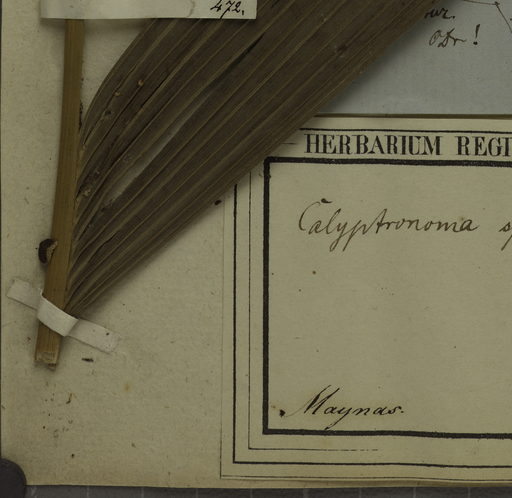 472.
HERBARIUM REGI
Calyptronoma
Maynas.